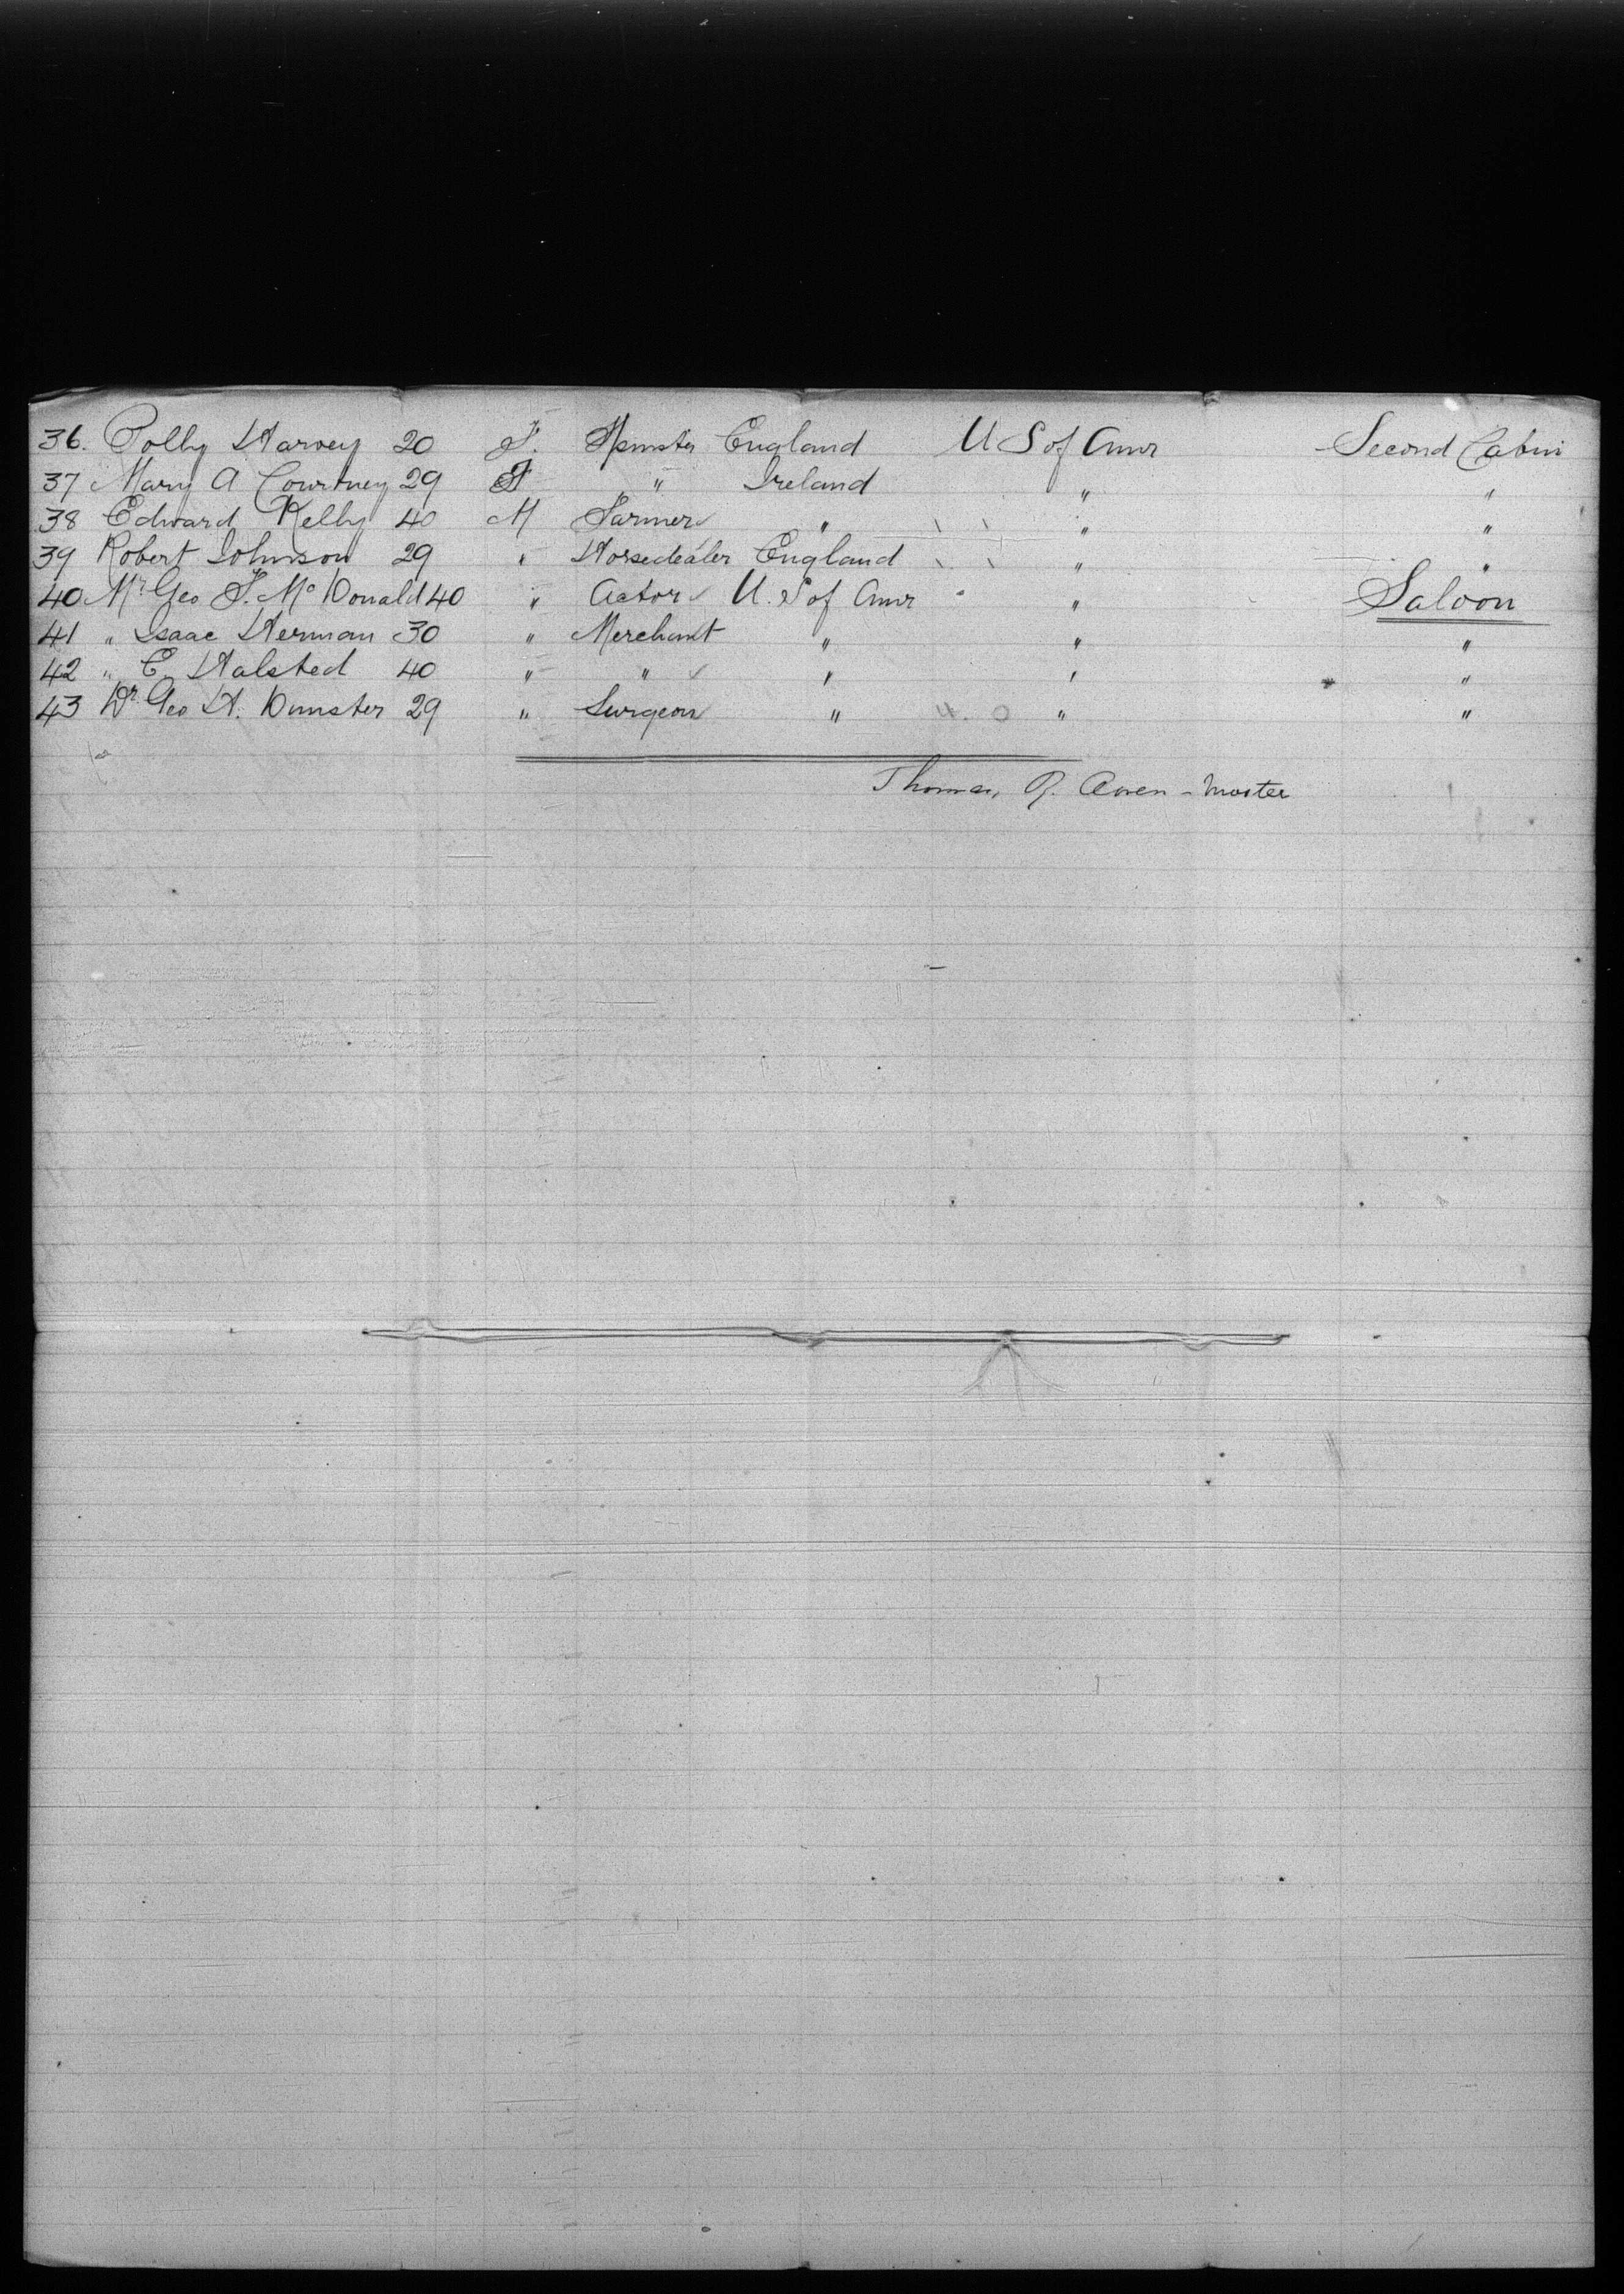 36. Polly Harvey 20 F. Spinster England U S of Amr Second Cabin
37 Mary A Courtney 29 F " Ireland " "
38 Edward Kelly 40 M Farmer " " "
39 Robert Johnson 29 " Horsedealer England " "
40 Mr Geo F. Mc Donald 40 " Actor U. S of Amr " Saloon
41 " Isaac Herman 30 " Merchant " " "
42 " E. Halsted 40 " " " " "
43 Dr Geo H. Dunster 29 " Surgeon " 4. 0 " "
Thomas - Master